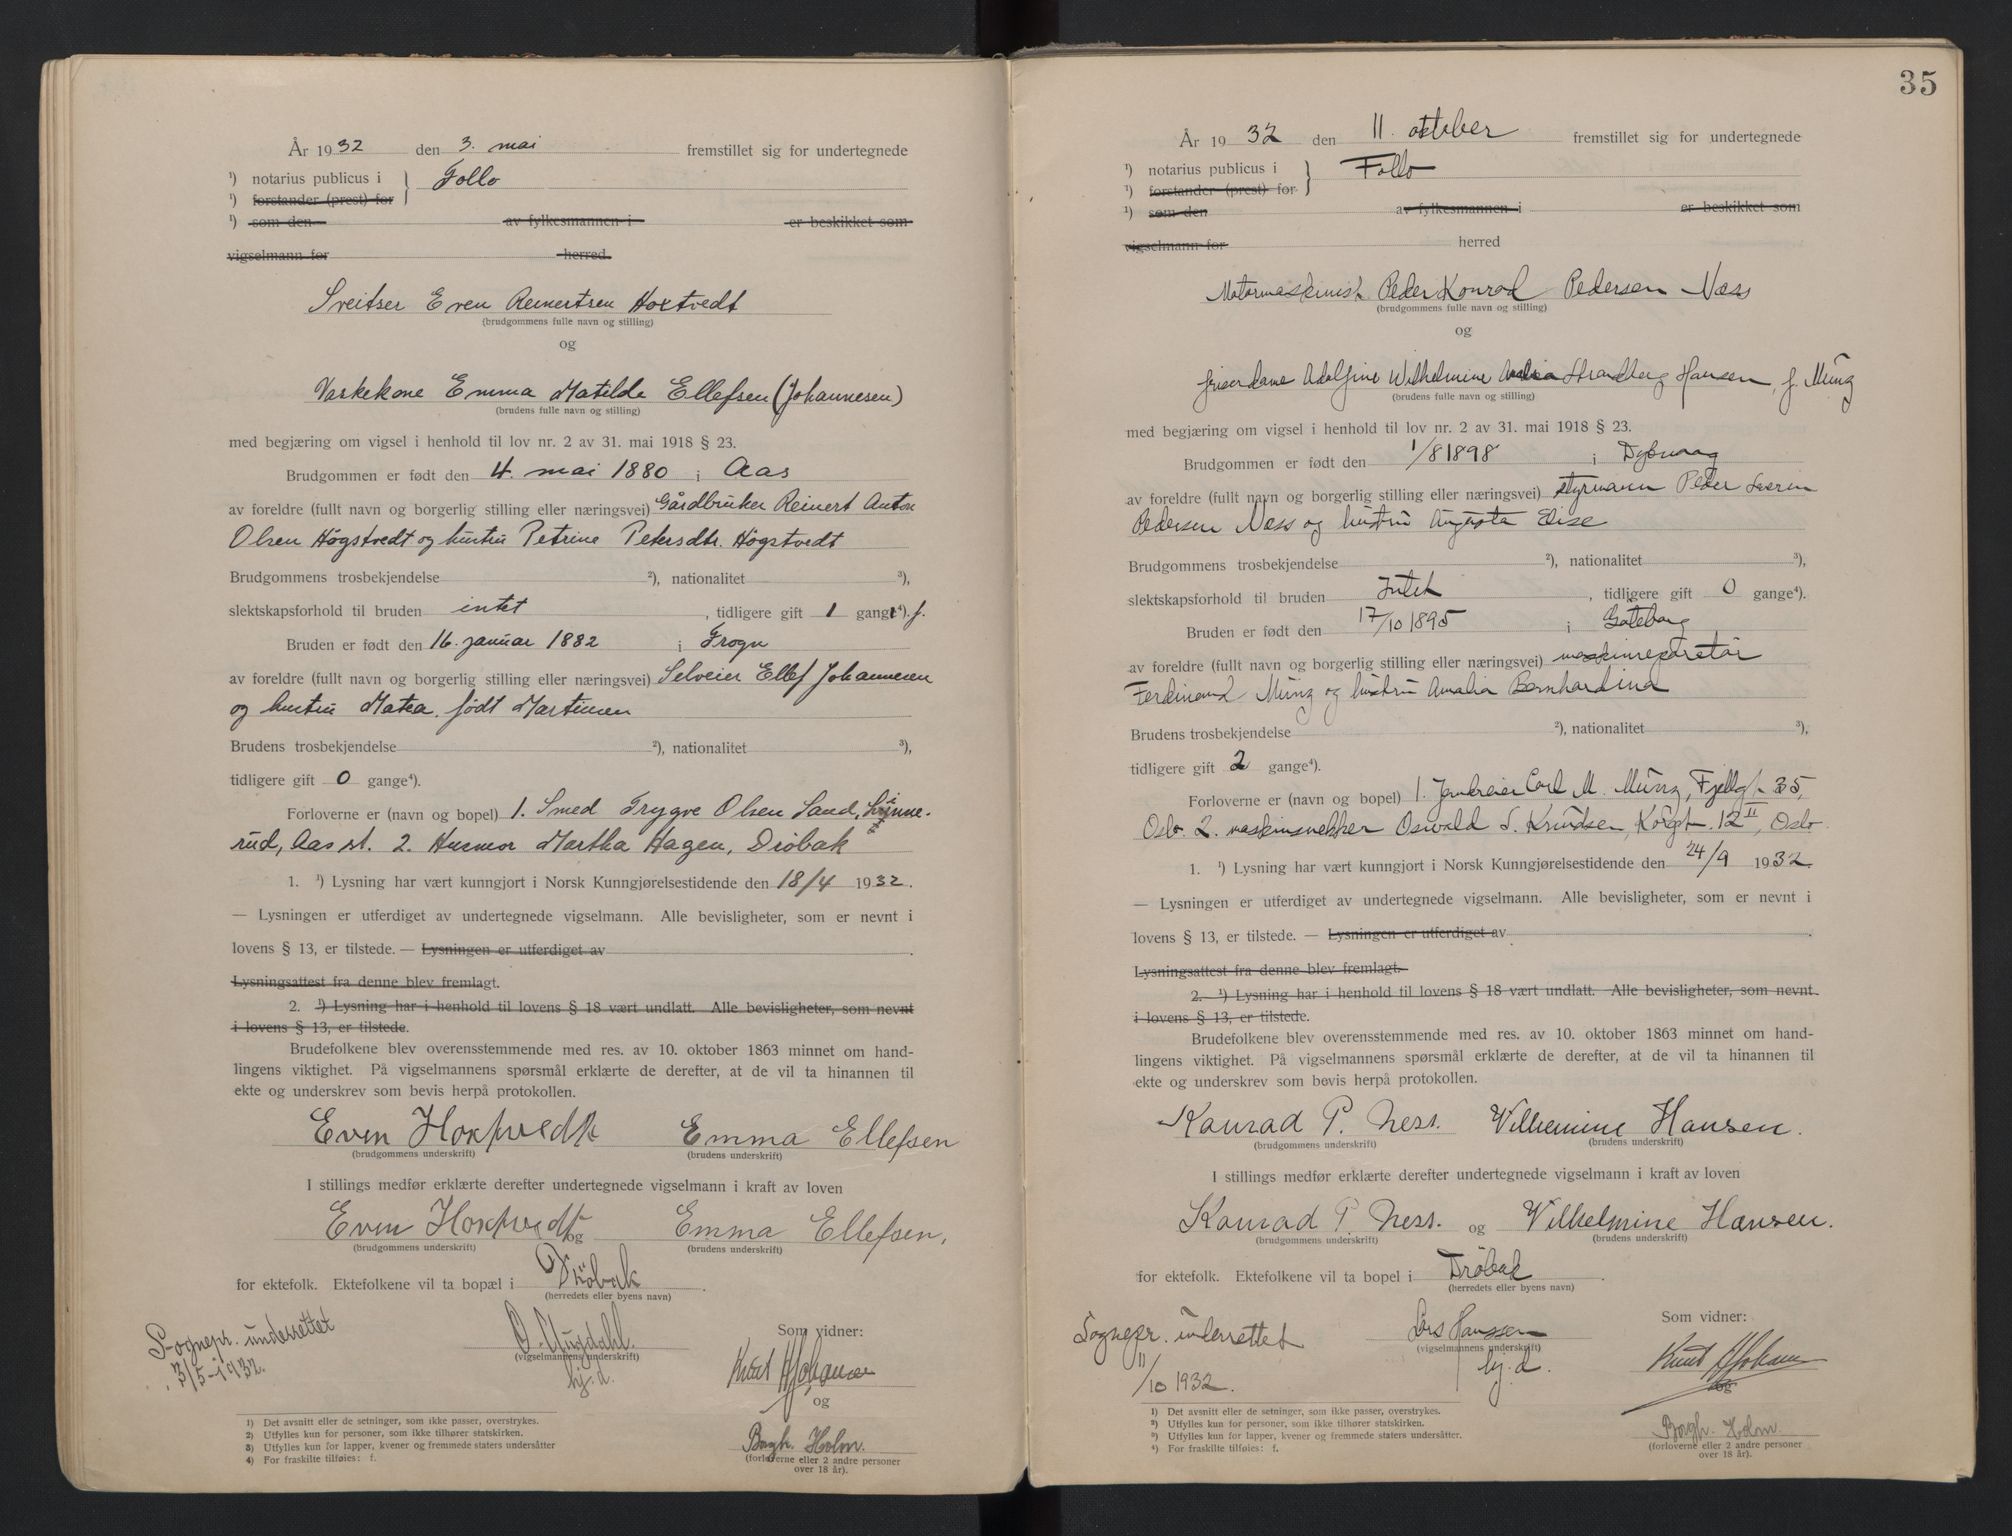 År 1932 den 3. mai fremstillet sig for undertegnede
¹) notarius publicus i } Follo
¹) forstander (prest) for
¹) som den av fylkesmannen i er beskikket som
vigselmann for herred.
Sveitser Even Reinertsen Hoxtvedt
(brudgommens fulle navn og stilling)
og
Vaskekone Emma Matilde Ellefsen (Johannesen)
(brudens fulle navn og stilling)
med begjæring om vigsel i henhold til lov nr. 2 av 31. mai 1918 § 23.
Brudgommen er født den 4. mai 1880 i Aas
av foreldre (fullt navn og borgerlig stilling eller næringsvei) Gårdbruker Reinert Anton
Olsen Högstvedt og hustru Petrine Petersdtr. Högstvedt
Brudgommens trosbekjendelse ²), nationalitet ³),
slektskapsforhold til bruden intet , tidligere gift 1 gang⁴). f.
Bruden er født den 16. januar 1882 i Frogn
av foreldre (fullt navn og borgerlig stilling eller næringsvei) Selveier Ellef Johannesen
og hustru Matea, født Martinsen
Brudens trosbekjendelse ²), nationalitet ³),
tidligere gift 0 gange⁴).
Forloverne er (navn og bopel) 1. Smed Trygve Olsen Sand,
rud, Aas st. 2. Husmor Martha Hagen, Dröbak
1. ¹) Lysning har vært kunngjort i Norsk Kunngjørelsestidende den 18/4 1932.
— Lysningen er utferdiget av undertegnede vigselmann. Alle bevisligheter, som er nevnt i
lovens § 13, er tilstede. — Lysningen er utferdiget av .
Lysningsattest fra denne blev fremlagt.
2. ¹) Lysning har i henhold til lovens § 18 vært undlatt. Alle bevisligheter, som nevnt
i lovens § 13, er tilstede.
Brudefolkene blev overensstemmende med res. av 10. oktober 1863 minnet om hand-
lingens viktighet. På vigselmannens spørsmål erklærte de derefter, at de vil ta hinannen til
ekte og underskrev som bevis herpå protokollen.
Even Hoxtvedt Emma Ellefsen
(brudgommens underskrift) (brudens underskrift)
I stillings medfør erklærte derefter undertegnede vigselmann i kraft av loven
Even Hoxtvedt og Emma Ellefsen,
(brudgommens underskrift) (brudens underskrift)
for ektefolk. Ektefolkene vil ta bopæl i Dröbak .
(herredets eller byens navn)
Sognepr. underrettet
3/5-1932.
Som vidner:
(vigselmannens underskrift)
hj. d.
Knut Johansen
og
Borgh. Holm.
(forloverne eller 2 andre personer
over 18 år).
1) Det avsnitt eller de setninger, som ikke passer, overstrykes.
2) Utfylles kun for personer, som ikke tilhører statskirken.
3) Utfylles kun for lapper, kvener og fremmede staters undersåtter
4) For fraskilte tilføies: f.
35
År 1932 den 11. oktober fremstillet sig for undertegnede
¹) notarius publicus i } Follo
¹) forstander (prest) for
¹) som den av fylkesmannen i er beskikket som
vigselmann for herred
Motormaskinist Peder Konrad Pedersen Næss
(brudgommens fulle navn og stilling)
og
friserdame Adolfine Wilhelmine Strandberg Hansen, f. Münz
(brudens fulle navn og stilling)
med begjæring om vigsel i henhold til lov nr. 2 av 31. mai 1918 § 23.
Brudgommen er født den 1/8 1898 i Dybvaag
av foreldre (fullt navn og borgerlig stilling eller næringsvei) styrmann Peder Severin
Pedersen Næss og hustru Augusta Elise
Brudgommens trosbekjendelse ²), nationalitet ³),
slektskapsforhold til bruden Intet , tidligere gift 0 gange⁴).
Bruden er født den 17/10 1895 i Göteborg
av foreldre (fullt navn og borgerlig stilling eller næringsvei) maskinreparetör
Ferdinand Münz og hustru Amalia Bernhardina
Brudens trosbekjendelse ²), nationalitet ³),
tidligere gift 2 gange⁴).
Forloverne er (navn og bopel) 1. Carl M. Münz, Fjellgt. 35,
Oslo. 2. maskinsnekker Oswald S. Knudsen, Korgt. 12 II, Oslo.
1. ¹) Lysning har vært kunngjort i Norsk Kunngjørelsestidende den 24/9 1932
— Lysningen er utferdiget av undertegnede vigselmann. Alle bevisligheter, som er nevnt i
lovens § 13, er tilstede. — Lysningen er utferdiget av .
Lysningsattest fra denne blev fremlagt.
2. ¹) Lysning har i henhold til lovens § 18 vært undlatt. Alle bevisligheter, som nevnt
i lovens § 13, er tilstede.
Brudefolkene blev overensstemmende med res. av 10. oktober 1863 minnet om hand-
lingens viktighet. På vigselmannens spørsmål erklærte de derefter, at de vil ta hinannen til
ekte og underskrev som bevis herpå protokollen.
Konrad P. Ness. Wilhelmine Hansen.
(brudgommens underskrift) (brudens underskrift)
I stillings medfør erklærte derefter undertegnede vigselmann i kraft av loven
Konrad P. Ness. og Wilhelmine Hansen.
(brudgommens underskrift) (brudens underskrift)
for ektefolk. Ektefolkene vil ta bopel i Dröbak .
(herredets eller byens navn)
Sognepr. underrettet
11/10 1932.
Lars Hanssen
(vigselmannens underskrift)
hj. d.
Som vidner:
Knut Johansen
og
Borgh. Holm.
(forloverne eller 2 andre personer
over 18 år).
1) Det avsnitt eller de setninger, som ikke passer, overstrykes.
2) Utfylles kun for personer, som ikke tilhører statskirken.
3) Utfylles kun for lapper, kvener og fremmede staters undersåtter.
4) For fraskilte tilføies: f.